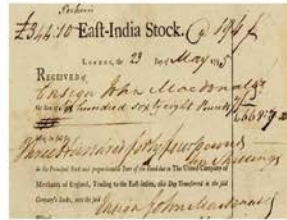 £344:10 East-India Stock. @ 194
London, the 23 Day of May 1795
Received of
Ensign John Macdonald
the Sum of Six hundred Sixty Eight Pounds
668:
Three Hundred forty four Pounds
Ten Shillings
in the Principal Stock and proportional Part of the Fund due to The United Company of
Merchants of England, Trading to the East-Indies, this Day Transferred in the said
Company's Books, unto the said
Ensign John Macdonald